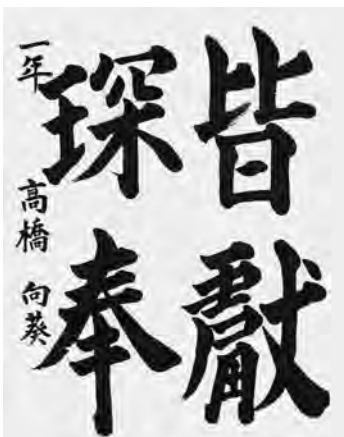 皆獻
琛奉
一年 高橋 向葵